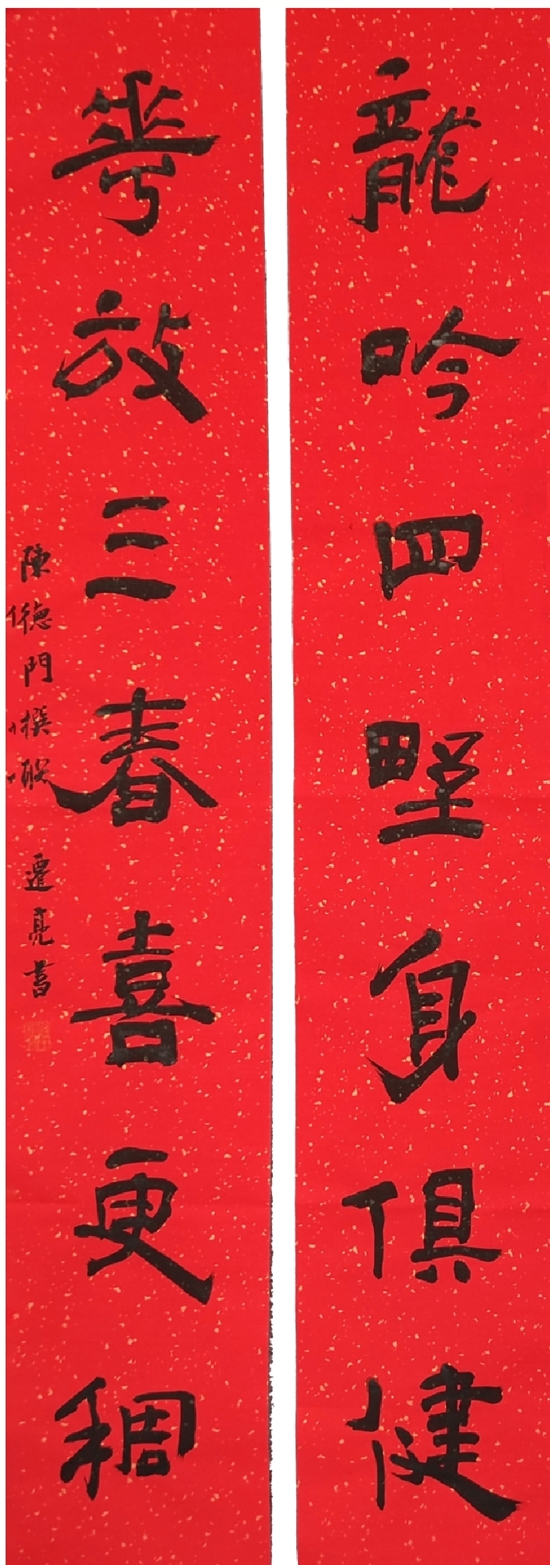 龍吟四野身俱健
華放三春喜更稠
陳德門撰联 遷亮書